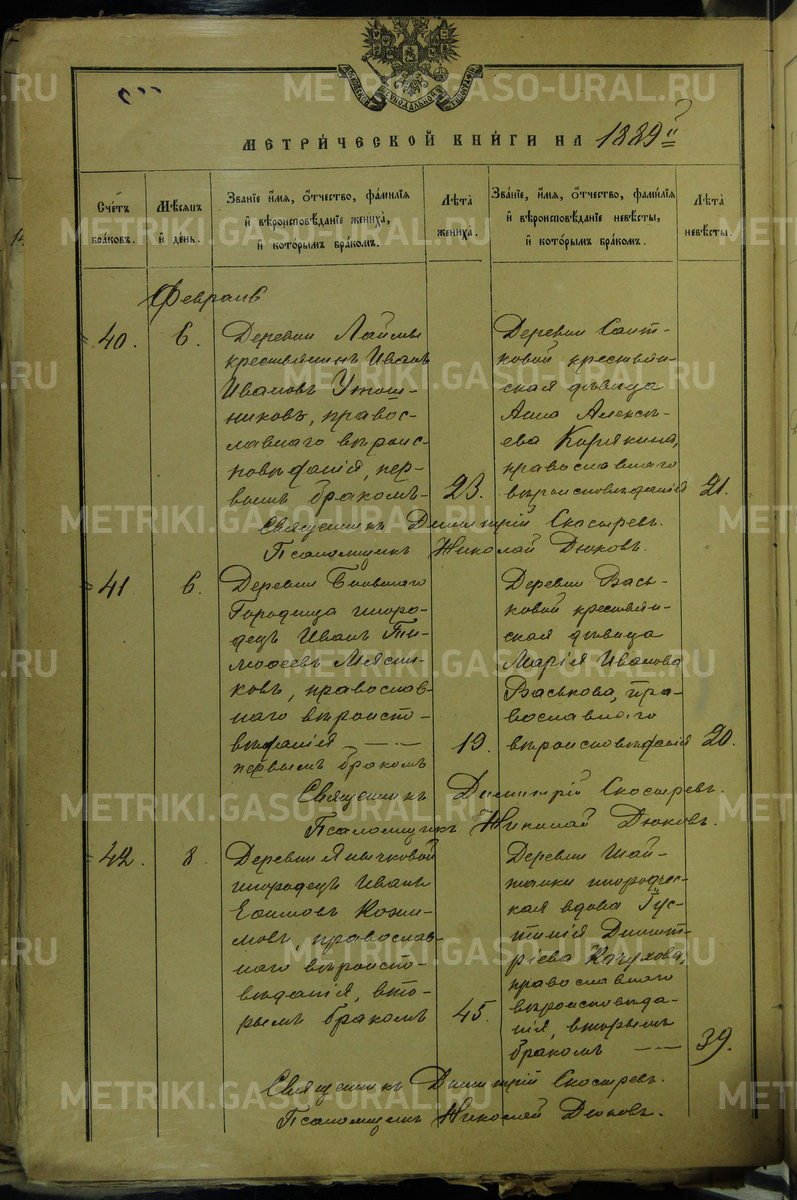 МЕТРИЧЕСКОЙ КНИГИ НА 1889 г.
Счетъ браковъ.
Мѣсяцъ и день.
Званіе, имя, отчество, фамилія и вѣроисповѣданіе жениха, и которымъ бракомъ.
Лѣта жениха.
Званіе, имя, отчество, фамилія и вѣроисповѣданіе невѣсты, и которымъ бракомъ.
Лѣта невѣсты.
Февраль
40.
6.
Деревни
крестьянинъ Иванъ
Ивановъ
никовъ, правос-
лавнаго вѣроис-
повѣданія, пер-
вымъ бракомъ
23.
Деревни Сит-
ковой крестьян-
ская дѣвица
Анна Алексѣ-
ева Корякина,
православнаго
вѣроисповѣданія
21.
Священникъ Димитрій Скосыревъ.
Псаломщикъ Николай Дюковъ.
41.
6.
Деревни
Городища иноро-
децъ Иванъ Ти-
моѳеевъ Мясни-
ковъ, православ-
наго вѣроиспо-
вѣданія
первымъ бракомъ
19.
Деревни Вась-
ковой крестьян-
ская дѣвица
Марія Иванова
Васькова, пра-
вославнаго
вѣроисповѣданія
20.
Священникъ Димитрій Скосыревъ.
Псаломщикъ Николай Дюковъ.
42.
8.
Деревни Янычковой
инородецъ Иванъ
Ефимовъ
православ-
наго вѣроиспо-
вѣданія, вто-
рымъ бракомъ
45.
Деревни Шай-
танки инородчес-
кая вдова Іус-
тинія Димит-
ріева
православнаго
вѣроисповѣда-
нія, вторымъ
бракомъ
39.
Священникъ Димитрій Скосыревъ.
Псаломщикъ Николай Дюковъ.
METRIKI.GASO-URAL.RU